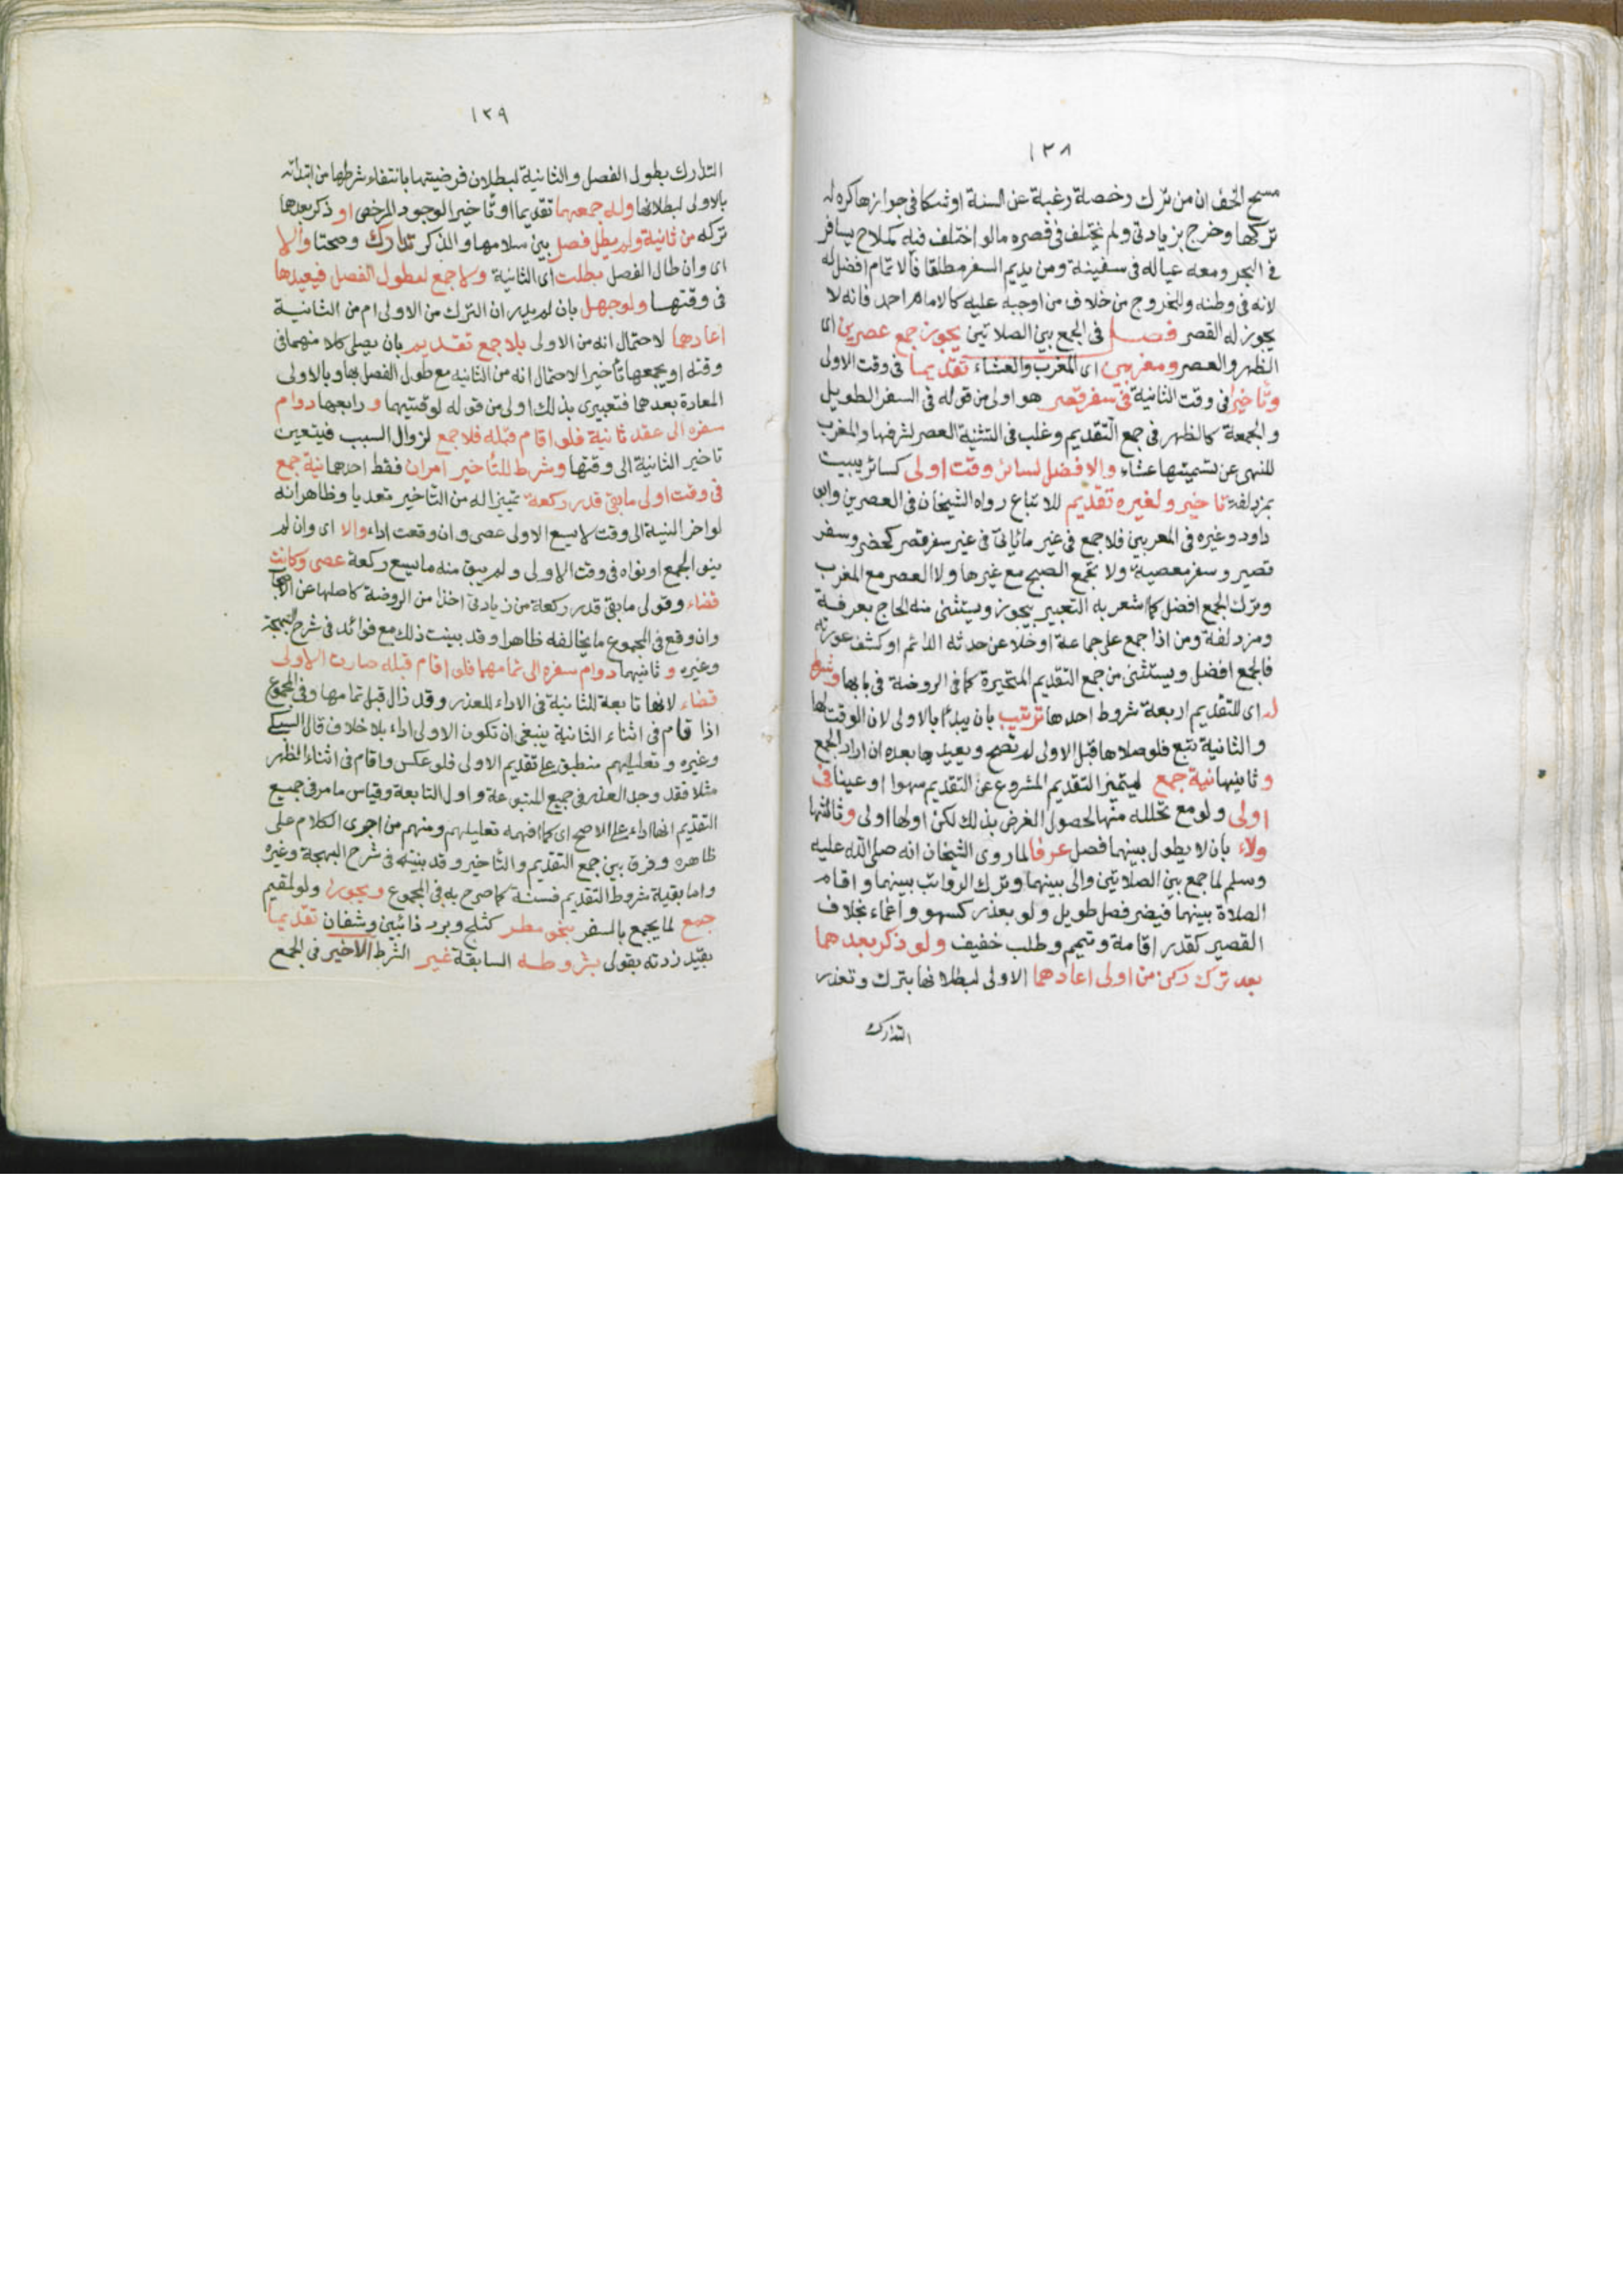 ١٣٨
مسح الخف ان من ترك رخصة رغبة عن السنة او شكا في جوازها كره له
تركها وخرج بزيادتي ولم يختلف في قصره ما لو اختلف فيه كملاح يسافر
في البحر ومعه عياله في سفينة ومن يديم السفر مطلقا فالاتمام افضل له
لانه في وطنه وللخروج من خلاف من اوجبه عليه كالامام احمد فانه لا
يجوز له القصر فصل في الجمع بين الصلاتين يجوز جمع عصرين اى
الظهر والعصر ومغربين اى المغرب والعشاء تقديما في وقت الاولى
وتاخيرا في وقت الثانية في سفر قصر هو اولى من قوله في السفر الطويل
والجمعة كالظهر في جمع التقديم وغلب في التثنية العصر لشرفها والمغرب
للنهى عن تسميتها عشاء والافضل لسائر وقت اولى كسائر يبيت
بمزدلفة تاخير ولغيره تقديم للاتباع رواه الشيخان في العصرين وابو
داود وغيره في المغربين فلا جمع في غير ما ياتى في غير سفر قصر كحضر وسفر
قصير وسفر معصية ولا تجمع الصبح مع غيرها ولا العصر مع المغرب
وترك الجمع افضل كما اشعر به التعبير بيجوز ويستثنى منه الحاج بعرفة
ومزدلفة ومن اذا جمع صلى جماعة او خلا عن حدثه الدائم او كشف عورته
فالجمع افضل ويستثنى من جمع التقديم المتحيرة كما في الروضة في بابها وشرط
له اى للتقديم اربعة شروط احدها ترتيب بان يبدأ بالاولى لان الوقت لها
والثانية تبع فلو صلاها قبل الاولى لم تصح ويعيدها بعدها ان اراد الجمع
وثانيها نية جمع ليتميز التقديم المشروع عن التقديم سهوا او عبثا في
اولى ولو مع تحلله منها لحصول الغرض بذلك لكن اولها اولى وثالثها
ولاء بان لا يطول بينهما فصل عرفا لما روى الشيخان انه صلى الله عليه
وسلم لما جمع بين الصلاتين والى بينهما وترك الرواتب بينهما واقام
الصلاة بينهما فيضر فصل طويل ولو بعذر كسهو واغماء بخلاف
القصير كقدر اقامة وتيمم وطلب خفيف ولو ذكر بعدهما
بعد ترك ركن من اولى اعادهما الاولى لبطلانها بترك وتعذر
التدارك
١٣٩
التدارك بطول الفصل والثانية لبطلان فرضيتها بانتفاء شرطها من ابتدائه
بالاولى لبطلانها وله جمعهما تقديما او تاخيرا لوجود المرخص او ذكر بعدهما
تركه من ثانية ولم يطل فصل بين سلامها والذكر تدارك وصحتا والا
اى وان طال الفصل بطلت اى الثانية ولا جمع لطول الفصل فيعيدها
في وقتها ولو جهل بان لم يدر ان الترك من الاولى ام من الثانية
اعادهما لاحتمال انه من الاولى بلا جمع تقديم بان يصلى كلا منهما في
وقته او يجمعهما تاخيرا لاحتمال انه من الثانية مع طول الفصل بها وبالاولى
المعادة بعدهما فتعبيرى بذلك اولى من قوله لوقتيهما ورابعها دوام
سفره الى عقد ثانية فلو اقام قبله فلا جمع لزوال السبب فيتعين
تاخير الثانية الى وقتها وشرط للتاخير امران فقط احدهما نية جمع
في وقت اولى ما بقي قدر ركعة تمييزا له من التاخير تعديا وظاهر انه
لو اخر النية الى وقت لا يسع الاولى عصى وان وقعت اداء والا اى وان لم
ينو الجمع او نواه في وقت الاولى ولم يبق منه ما يسع ركعة عصى وكانت
قضاء وقولى ما بقي قدر ركعة من زيادتى اخذا من الروضة كاصلها عن الاصحاب
وان وقع في المجموع ما يخالفه ظاهرا وقد بينت ذلك مع فوائد في شرح البهجة
وغيره وثانيهما دوام سفره الى تمامهما فلو اقام قبله صارت الاولى
قضاء لانها تابعة للثانية في الاداء للعذر وقد زال قبل تمامها وفي المجموع
اذا قام في اثناء الثانية ينبغي ان تكون الاولى اداء بلا خلاف قال السبكى
وغيره وتعليلهم منطبق على تقديم الاولى فلو عكس واقام في اثناء الظهر
مثلا فقد وجد العذر في جميع المتبوعة واول التابعة وقياس ما مر في جميع
التقديم انها اداء على الاصح اى كما افهمه تعليلهم ومنهم من اجرى الكلام على
ظاهره وفرق بين جمع التقديم والتاخير وقد بينته في شرح البهجة وغيره
واما بقية شروط التقديم فسنة كما صرح به في المجموع ويجوز ولو لمقيم
جمع لما يجمع بالسفر بنحو مطر كثلج وبرد ذائبين وشفان تقديما
بقيد زدته بقولى بشروطه السابقة غير الشرط الاخير في الجمع